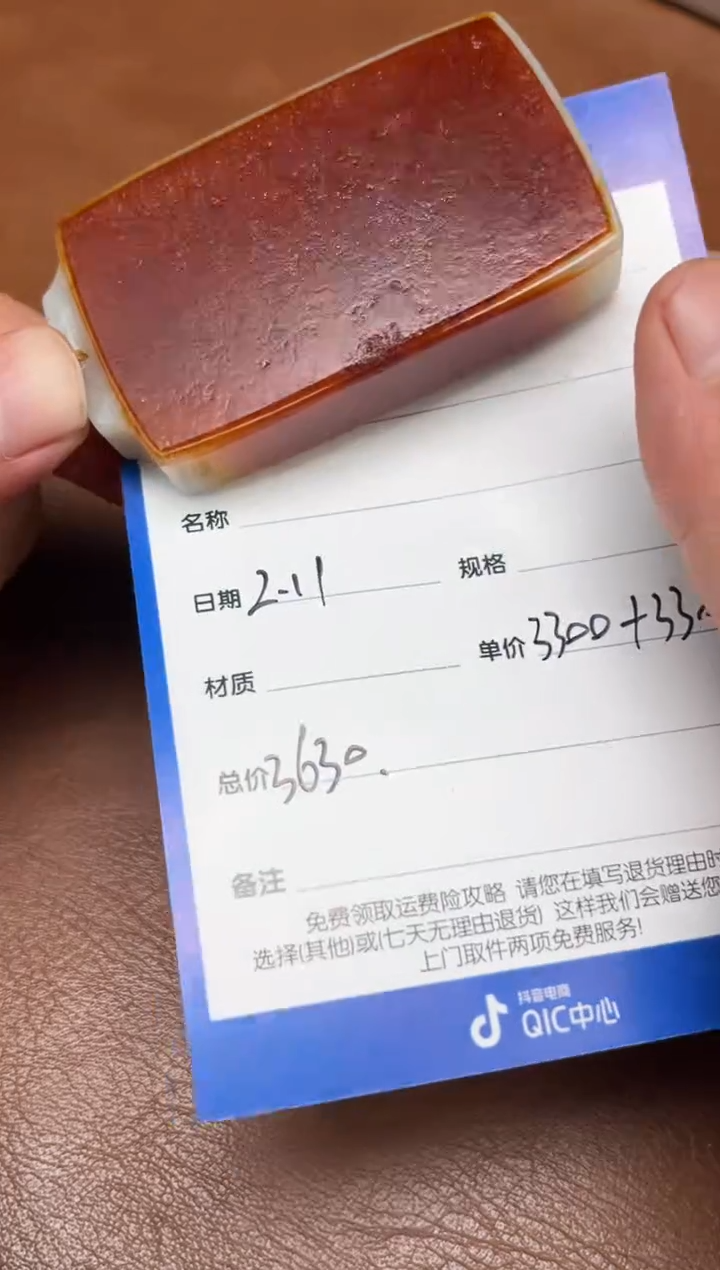 名称
日期 2-11 规格
单价 3300+330
材质
总价 3630.
备注
免费领取运费险攻略 请您在填写退货理由时
选择(其他)或(七天无理由退货) 这样我们会赠送您
上门取件两项免费服务!
抖音电商
QIC中心